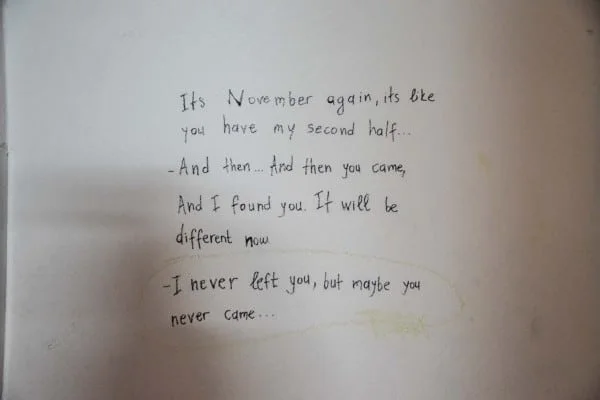 Its November again, its like
you have my second half...
-And then... And then you came,
And I found you. It will be
different now
-I never left you, but maybe you
never came...